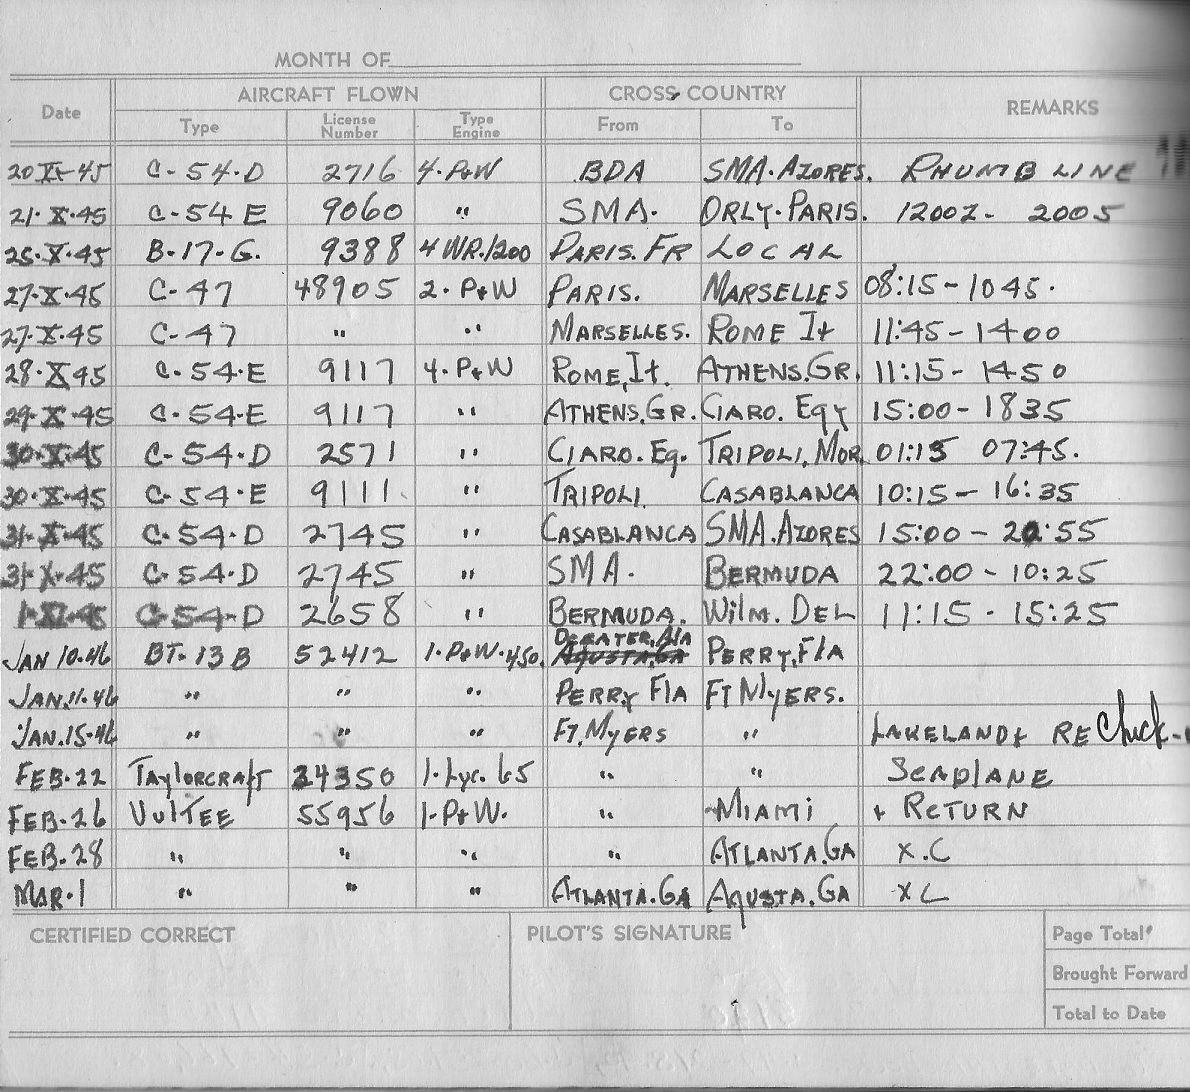 MONTH OF
Date AIRCRAFT FLOWN CROSS COUNTRY REMARKS
Type License Number Type Engine From To
20 XI-45 C-54-D 2716 4-P+W BDA SMA.AZORES. RHUMB LINE
21-X-45 C-54 E 9060 " SMA. ORLY-PARIS. 1200Z- 2005
25-X-45 B-17-G. 9388 4 WR.1200 PARIS.FR LOCAL
27-X-45 C-47 48905 2-P+W PARIS. MARSELLES 08:15-1045.
27-X-45 C-47 " " MARSELLES. ROME It 11:45-1400
28-X45 C-54-E 9117 4-P+W ROME,It. ATHENS.GR. 11:15-1450
29-X-45 C-54-E 9117 " ATHENS.GR. CIARO. Egy 15:00-1835
30-X-45 C-54-D 2571 " CIARO.Eg. TRIPOLI,MOR. 01:15 07:45.
30-X-45 C-54-E 9111. " TRIPOLI. CASABLANCA 10:15-16:35
31-X-45 C-54-D 2745 " CASABLANCA SMA.AZORES 15:00-20:55
31-X-45 C-54-D 2745 " SMA. BERMUDA 22:00-10:25
1-XI-45 C-54-D 2658 " BERMUDA. Wilm. DEL 11:15-15:25
DECATER,Ala
JAN 10.46 BT-13B 52412 1-P+W-450. AGUSTA,GA PERRY,Fla
JAN.11-46 " " " PERRY Fla FT MYERS.
JAN.15-46 " " " FT.MYERS " LAKELAND+ RE Chick-
FEB-22 TAYlORCRAft 24350 1-Lyc. 65 " " SEAPLANE
FEB-26 VulTEE 55956 1-P+W. " MiAMi + RETURN
FEB-28 " " " " ATLANTA.GA X.C
MAR-1 " " " ATLANTA.GA AgUSTA.GA XC
CERTIFIED CORRECT PILOT'S SIGNATURE Page Total
Brought Forward
Total to Date